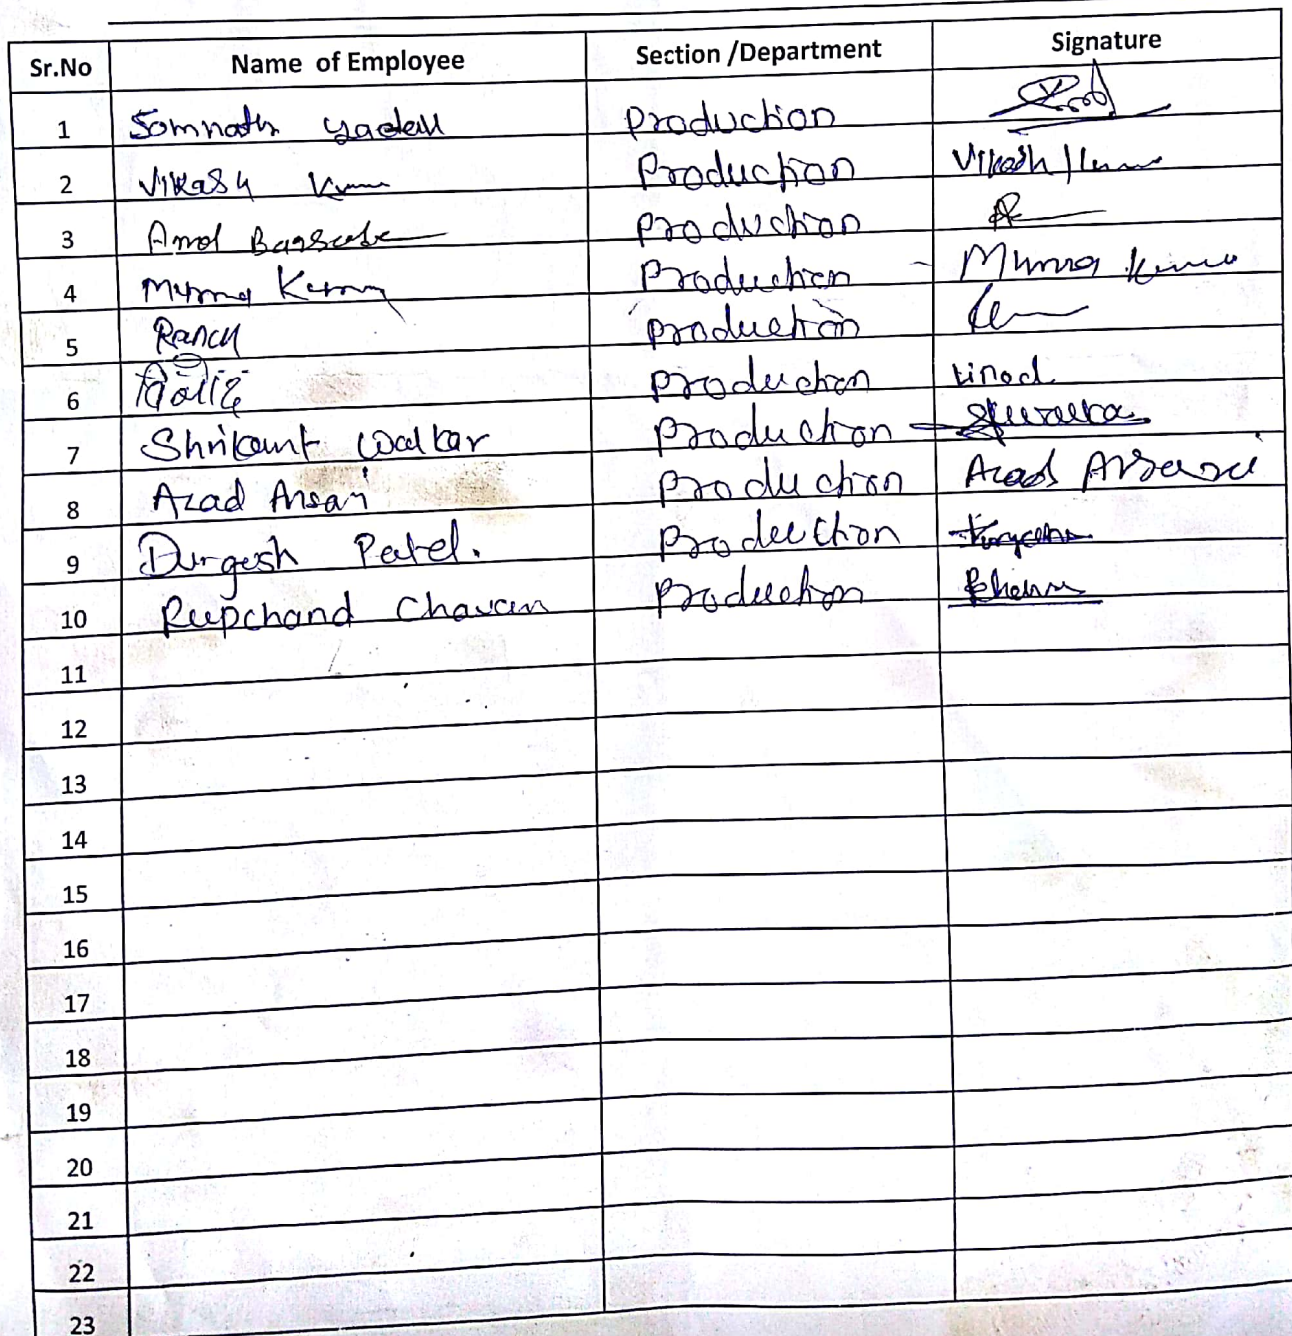 Sr.No Name of Employee Section /Department Signature
1 Somnath yadav Production
2 Vikash Kum Production Vikash Kum
3 Amol Production
4 Munna Kumar Production Munna Kumar
5 Production
6 Production Vinod
7 Shrikant Walkar Production
8 Azad Ansari Production Azad Ansari
9 Durgesh Patel. Production
10 Rupchand Chavan Production
11
12
13
14
15
16
17
18
19
20
21
22
23